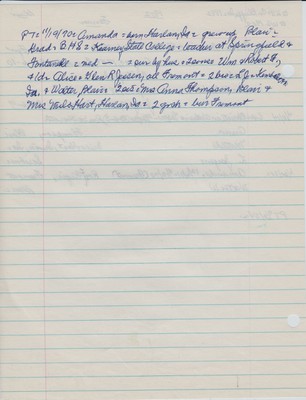 PT = 4/19/70 = Amanda = born Harlan, Ia = grew and Blair =
Grad = B.H.S = Kearney State College = teacher at Springfield &
Fontanelle = med — = sur by hus = 2 sons Wm & Robert F.,
4/dr Alice & Glen R. Jensen, all Fremont = 2 bros
Ia. & Walter, Blair = 2 sis = Mrs Anna Thompson, Blair &
Mrs Hart, Harlan, Ia = 2 gnch = bur Fremont